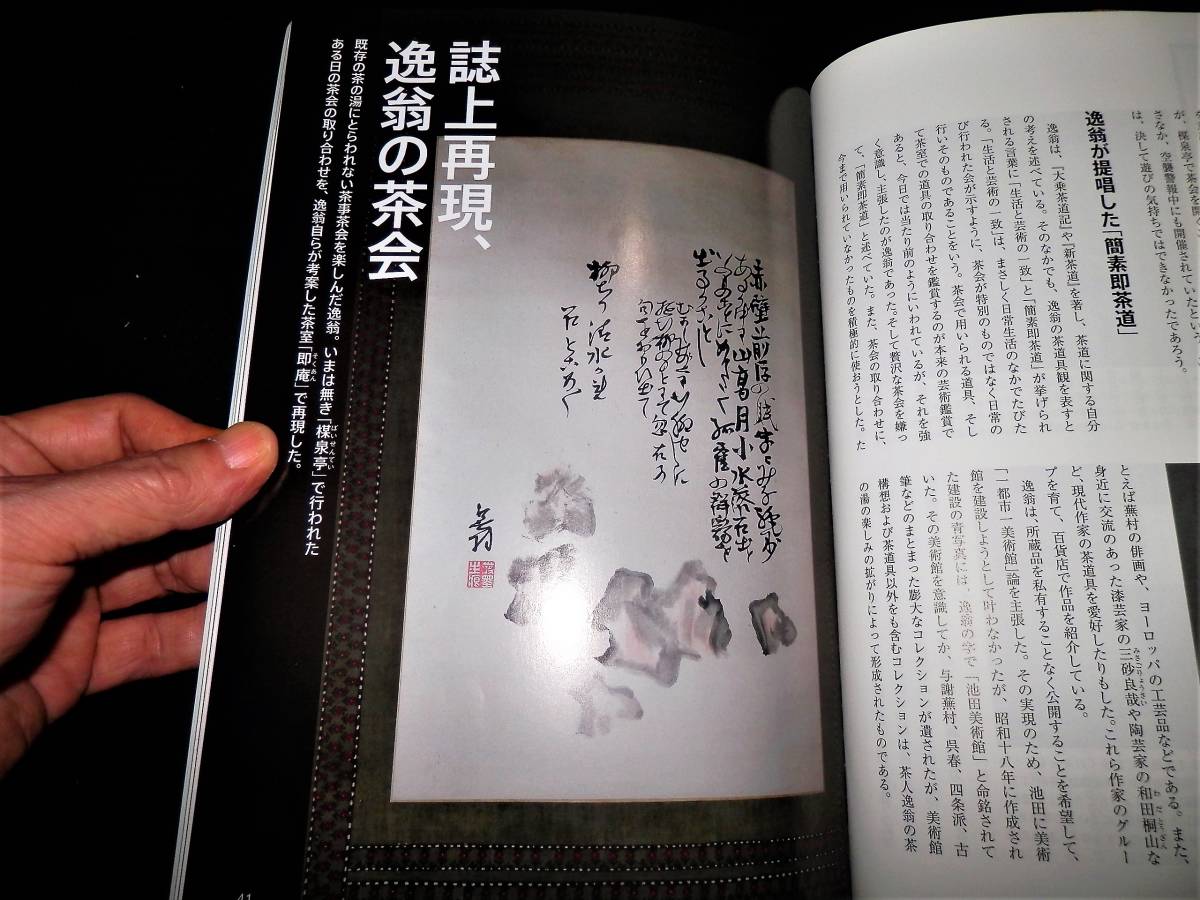 が、楳泉亭で茶会を開
さなか、空襲警報中にも開催されていたという。
は、決して遊びの気持ちではできなかったであろう。
逸翁が提唱した「簡素即茶道」
逸翁は、『大乗茶道記』や『新茶道』を著し、茶道に関する自分
の考えを述べている。そのなかでも、逸翁の茶道具観を表すと
される言葉に「生活と芸術の一致」と「簡素即茶道」が挙げられ
る。「生活と芸術の一致」は、まさしく日常生活のなかでたびた
び行われた会が示すように、茶会が特別のものではなく日常の
行いそのものであることをいう。茶会で用いられる道具、そし
て茶室での道具の取り合わせを鑑賞するのが本来の芸術鑑賞で
あると、今日では当たり前のようにいわれているが、それを強
く意識し、主張したのが逸翁であった。そして贅沢な茶会を嫌っ
て、「簡素即茶道」と述べていた。また、茶会の取り合わせに、
今まで用いられていなかったものを積極的に使おうとした。た
とえば蕪村の俳画や、ヨーロッパの工芸品などである。また、
身近に交流のあった漆芸家の三砂良哉や陶芸家の和田桐山な
ど、現代作家の茶道具を愛好したりもした。これら作家のグルー
プを育て、百貨店で作品を紹介している。
逸翁は、所蔵品を私有することなく公開することを希望して、
「一都市一美術館」論を主張した。その実現のため、池田に美術
館を建設しようとして叶わなかったが、昭和十八年に作成され
た建設の青写真には、逸翁の字で「池田美術館」と命銘されて
いた。その美術館を意識してか、与謝蕪村、呉春、四条派、古
筆などのまとまった膨大なコレクションが遺されたが、美術館
構想および茶道具以外をも含むコレクションは、茶人逸翁の茶
の湯の楽しみの拡がりによって形成されたものである。
誌上再現、
逸翁の茶会
既存の茶の湯にとらわれない茶事茶会を楽しんだ逸翁。いまは無き「楳泉亭」で行われた
ある日の茶会の取り合わせを、逸翁自らが考案した茶室「即庵」で再現した。
山高月小水落石出
41